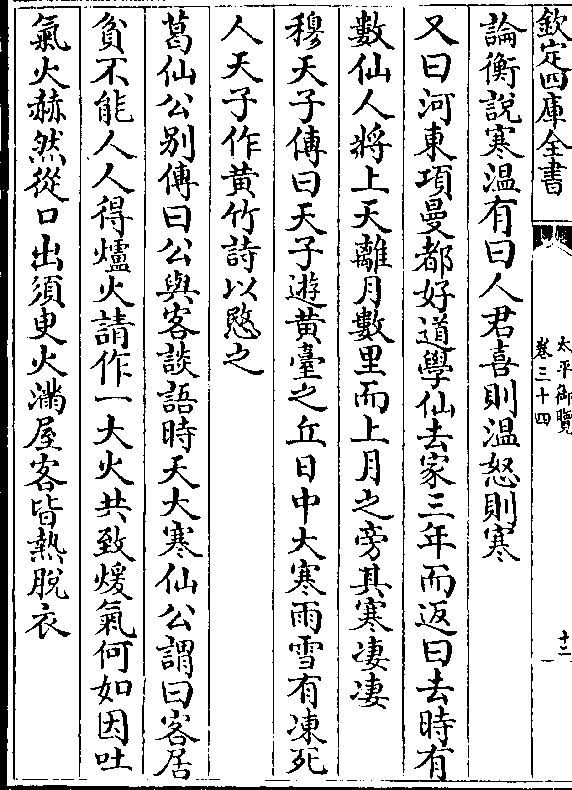 欽定四庫全書
太平御覽
卷三十四
十二
論衡說寒温有曰人君喜則温怒則寒
又曰河東項曼都好道學仙去家三年而返曰去時有
數仙人將上天離月數里而上月之旁其寒凄凄
穆天子傳曰天子遊黃臺之丘日中大寒雨雪有凍死
人天子作黃竹詩以愍之
葛仙公别傳曰公與客談語時天大寒仙公謂曰客居
貧不能人人得爐火請作一大火共致煖氣何如因吐
氣火赫然從口出須臾火滿屋客皆熱脫衣